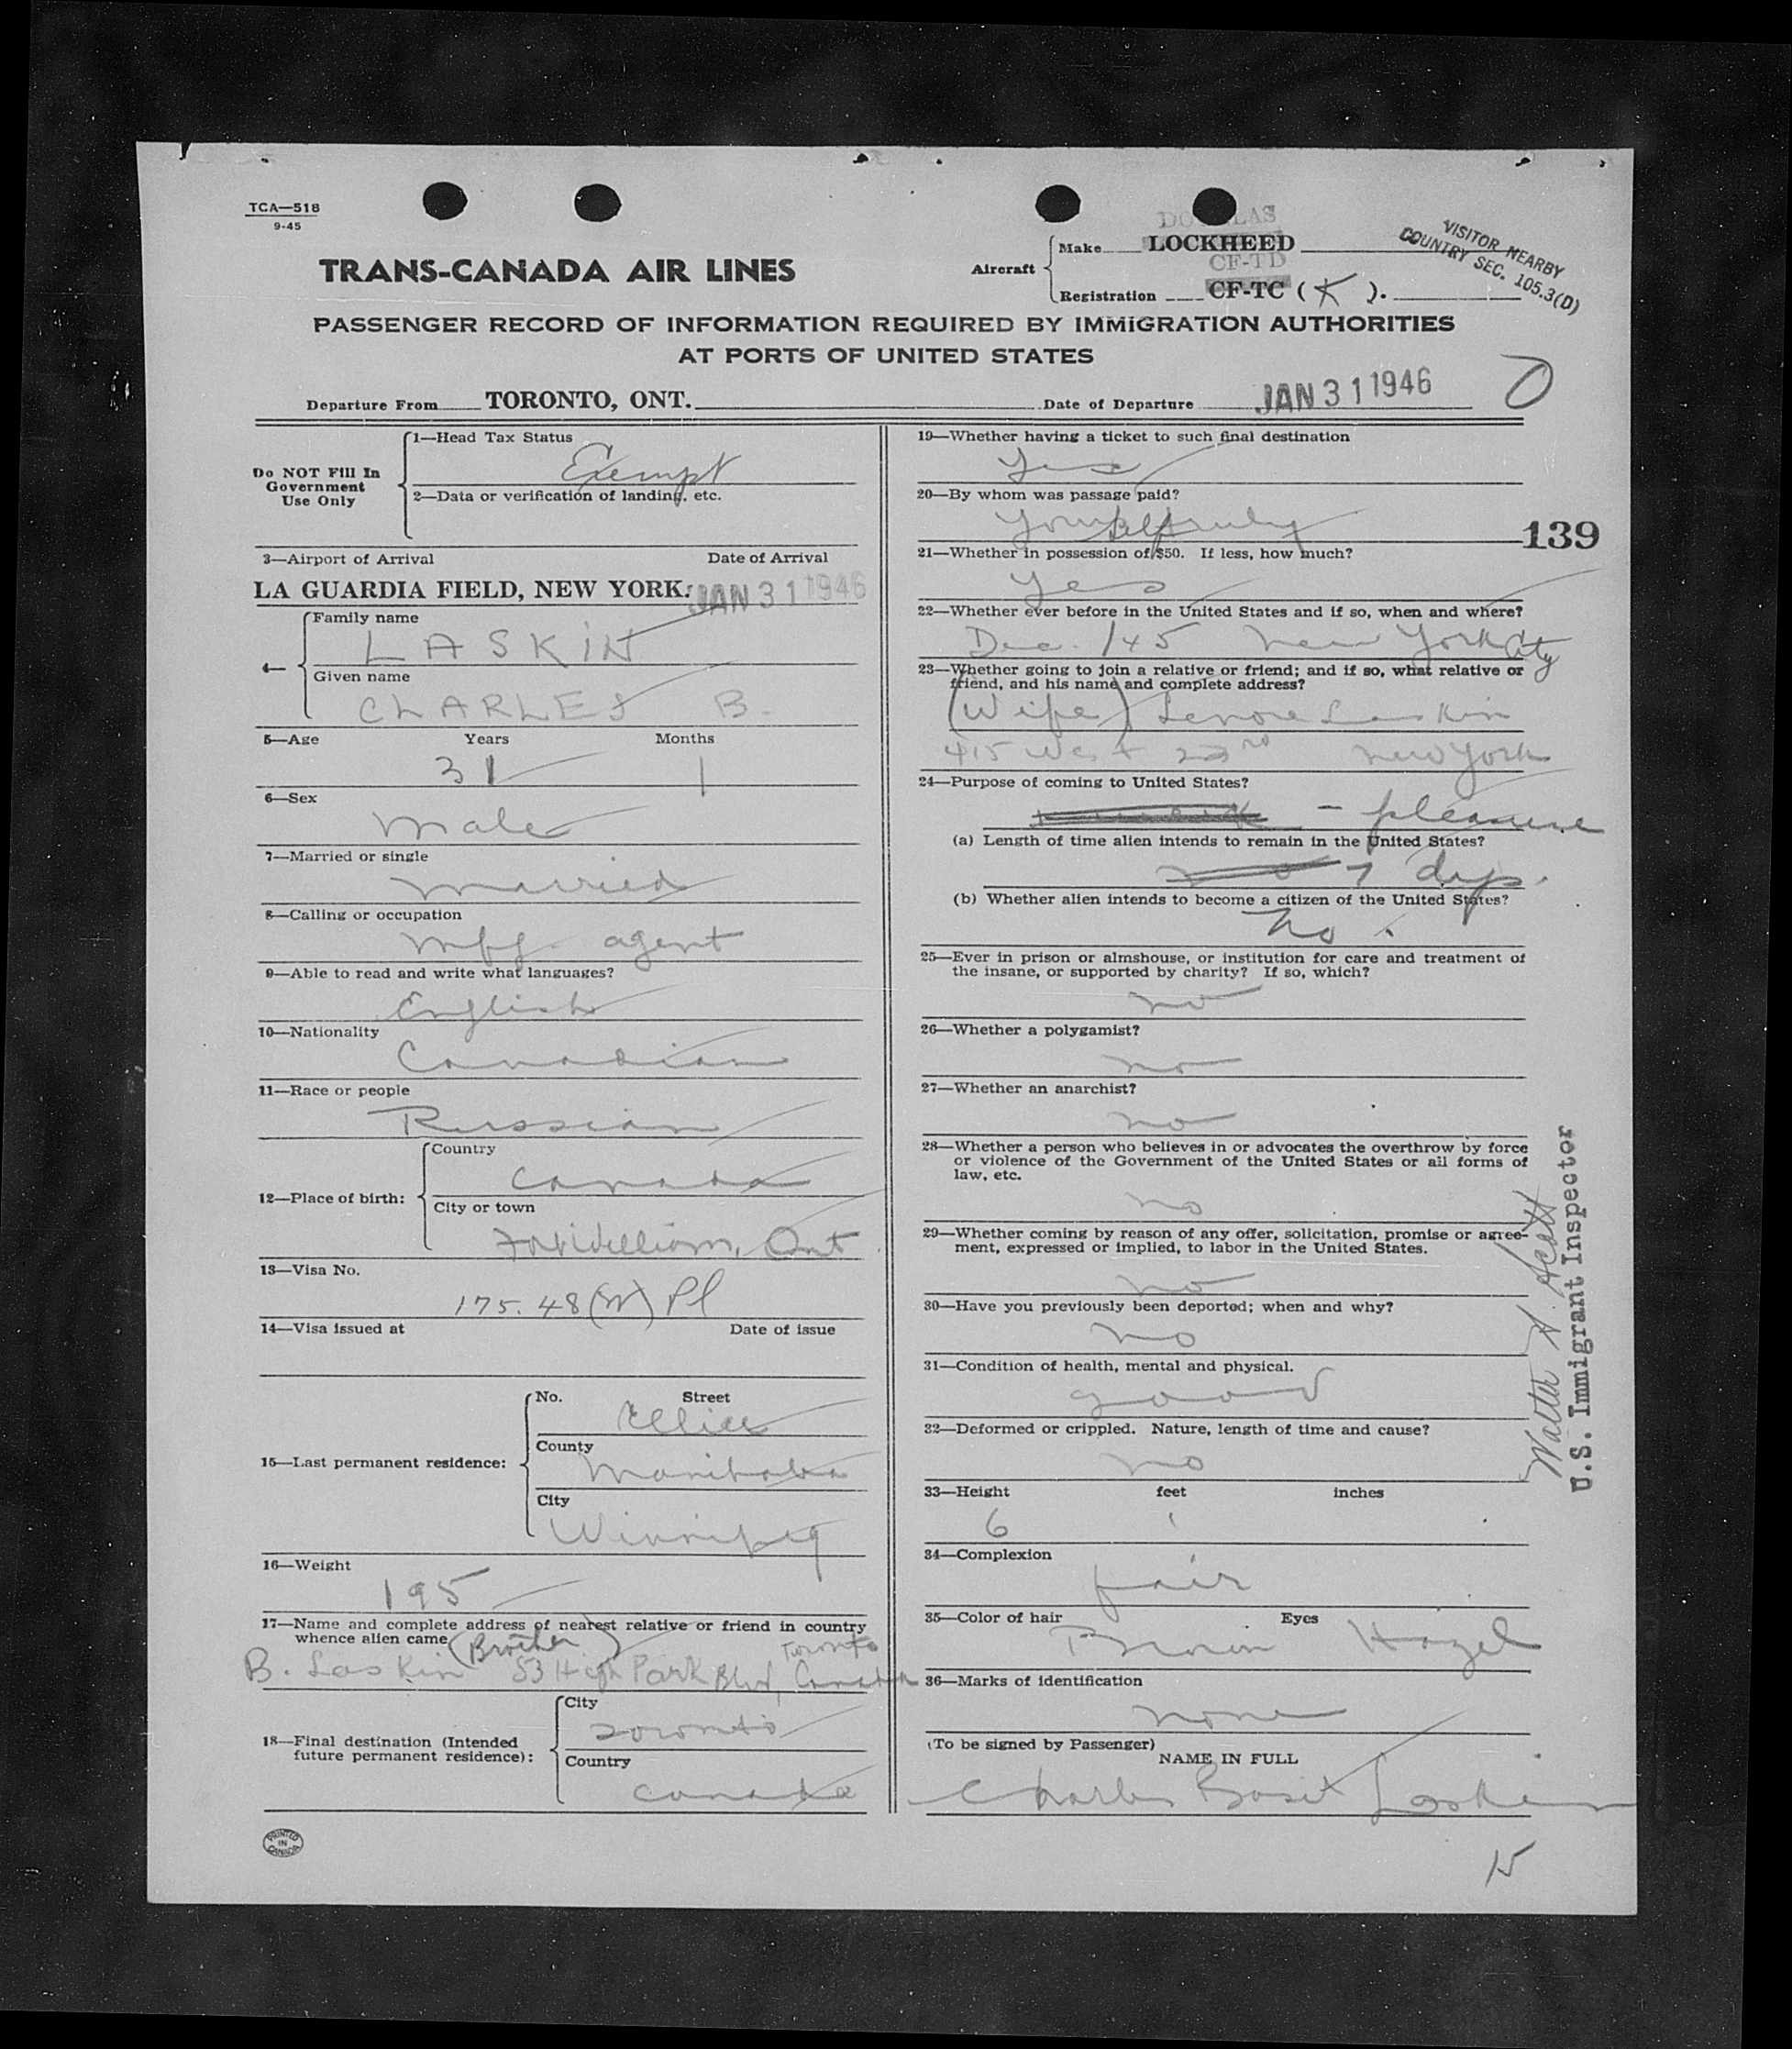 TCA—518
9-45
DOUGLAS
Make LOCKHEED
VISITOR NEARBY
COUNTRY SEC. 105.3(D)
TRANS-CANADA AIR LINES
Aircraft
CF-TD
Registration CF-TC (K).
PASSENGER RECORD OF INFORMATION REQUIRED BY IMMIGRATION AUTHORITIES
AT PORTS OF UNITED STATES
Departure From TORONTO, ONT. Date of Departure JAN 31 1946
Do NOT Fill In
Government
Use Only
1—Head Tax Status
Exempt
2—Data or verification of landing, etc.
3—Airport of Arrival Date of Arrival
LA GUARDIA FIELD, NEW YORK. JAN 31 1946
4—
Family name
LASKIN
Given name
CHARLES B.
5—Age Years Months
31 1
6—Sex
Male
7—Married or single
Married
8—Calling or occupation
Mfg. agent
9—Able to read and write what languages?
English
10—Nationality
Canadian
11—Race or people
Russian
12—Place of birth:
Country
Canada
City or town
Ft William, Ont
13—Visa No.
175.48 (W) Pl
14—Visa issued at Date of issue
15—Last permanent residence:
No. Street
Ellice
County
Manitoba
City
Winnipeg
16—Weight
195
17—Name and complete address of nearest relative or friend in country
whence alien came (Brother)
Toronto
B. Laskin 53 High Park Blvd, Canada
18—Final destination (Intended
future permanent residence):
City
Toronto
Country
Canada
PRINTED
IN
CANADA
19—Whether having a ticket to such final destination
Yes
20—By whom was passage paid?
Yours truly Self
139
21—Whether in possession of $50. If less, how much?
Yes
22—Whether ever before in the United States and if so, when and where?
Dec. /45 New York City
23—Whether going to join a relative or friend; and if so, what relative or
friend, and his name and complete address?
(Wife) Lenore Laskin
415 West 23rd New York
24—Purpose of coming to United States?
- pleasure
(a) Length of time alien intends to remain in the United States?
7 days.
(b) Whether alien intends to become a citizen of the United States?
No.
25—Ever in prison or almshouse, or institution for care and treatment of
the insane, or supported by charity? If so, which?
no
26—Whether a polygamist?
no
27—Whether an anarchist?
no
28—Whether a person who believes in or advocates the overthrow by force
or violence of the Government of the United States or all forms of
law, etc.
no
29—Whether coming by reason of any offer, solicitation, promise or agree-
ment, expressed or implied, to labor in the United States.
no
30—Have you previously been deported; when and why?
no
31—Condition of health, mental and physical.
good
32—Deformed or crippled. Nature, length of time and cause?
no
33—Height feet inches
6 1
34—Complexion
fair
35—Color of hair Eyes
Brown Hazel
36—Marks of identification
none
(To be signed by Passenger)
NAME IN FULL
Charles Laskin
15
Walter A. Scott
U.S. Immigrant Inspector